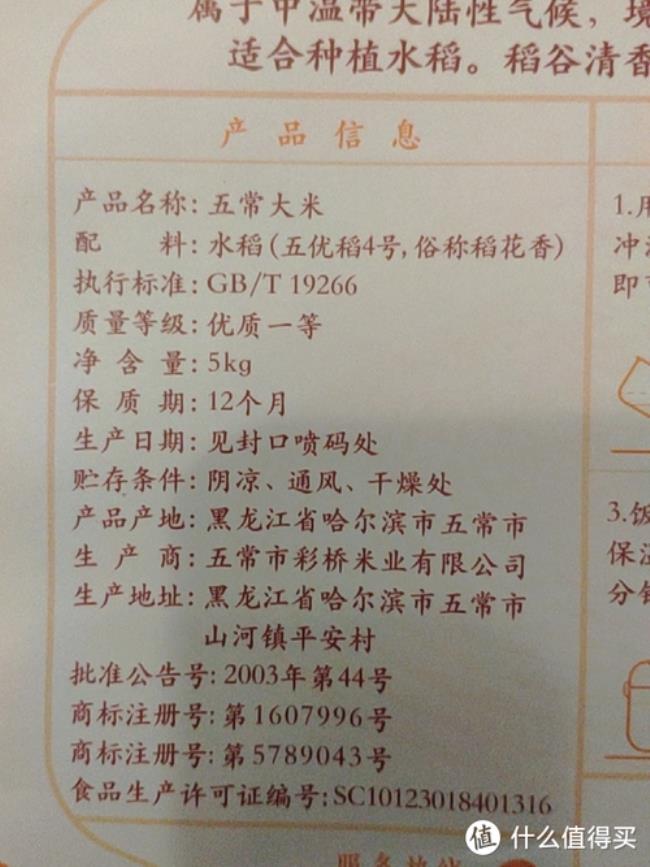 属于中温带大陆性气候，境
适合种植水稻。稻谷清香
产品信息
产品名称：五常大米
配料：水稻（五优稻4号，俗称稻花香）
执行标准：GB/T 19266
质量等级：优质一等
净含量：5kg
保质期：12个月
生产日期：见封口喷码处
贮存条件：阴凉、通风、干燥处
产品产地：黑龙江省哈尔滨市五常市
生产商：五常市彩桥米业有限公司
生产地址：黑龙江省哈尔滨市五常市
山河镇平安村
批准公告号：2003年第44号
商标注册号：第1607996号
商标注册号：第5789043号
食品生产许可证编号：SC10123018401316
1.用
即可
3.饭
保温
分钟
服务热线
值 什么值得买